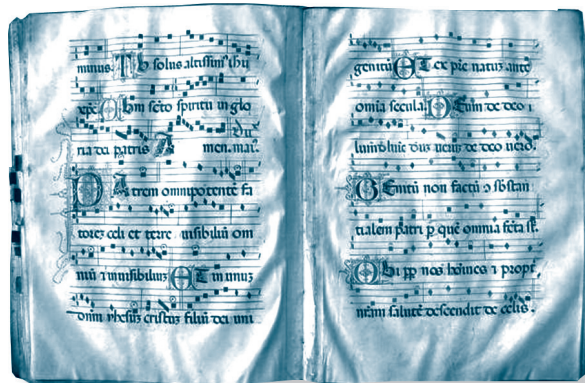 minus. Tu solus altissim' ihu
xpe. Cum scto spiritu in glo
ria dei patris A men.
Patrem omnipotente fa
torez celi et terre uisibiliu om
niu ⁊ inuisibiliuz Et in unuz
dnm yhesuz cristuz filiu dei uni
genitu Et ex pre natuz ante
omia secula Deum de deo
lum d'luie d'us ueru de deo uero.
Genitu non factu ɔsbstan
tialem patri p que omnia fcta st.
Qui pp nos hoines ⁊ propt
nram salute descendit de celis.